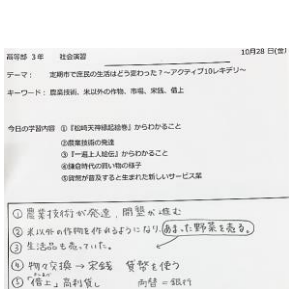 高等部 3年 社会演習 10月28日(金)
テーマ: 定期市で庶民の生活はどう変わった?～アクティブ10レキデリ～
キーワード: 農業技術、米以外の作物、市場、宋銭、借上
今日の学習内容 ①『松崎天神縁起絵巻』からわかること
②農業技術の発達
③『一遍上人絵伝』からわかること
④鎌倉時代の買い物の様子
⑤貨幣が普及すると生まれた新しいサービス業
① 農業技術が発達、開墾が進む
② 米以外の作物を作れるようになり、あまった野菜を売る。
③ 生活品も売っていた。
④ 物々交換 → 宋銭 貨幣を使う
⑤「借上」高利貸し 両替=銀行